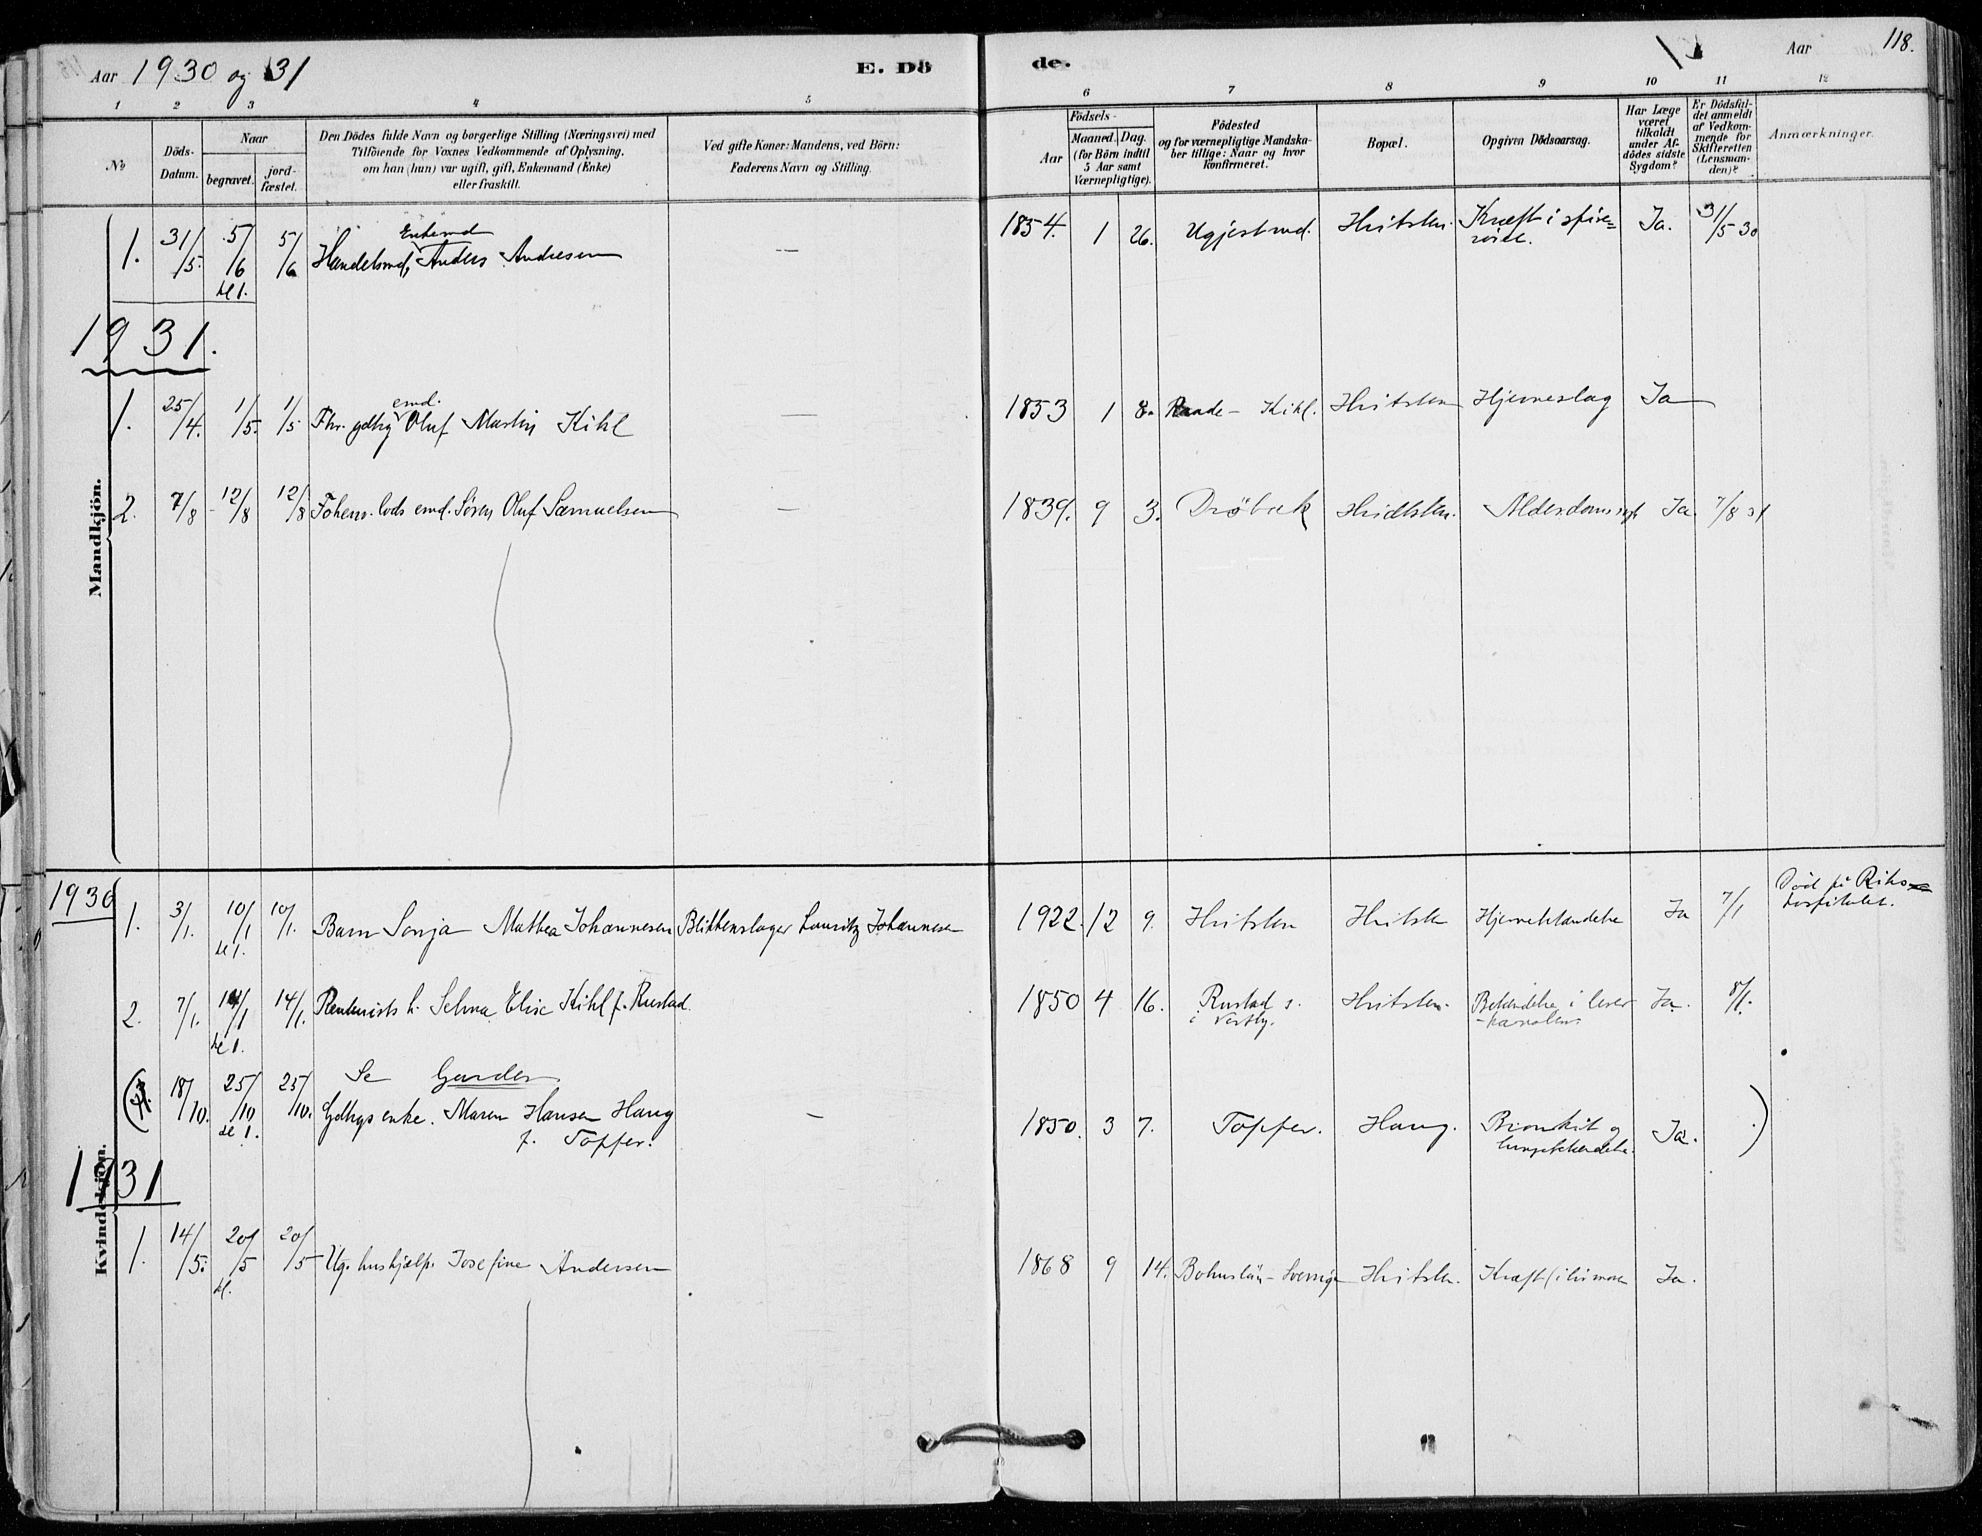 Aar 1930 og 31
E. Dö
de.
Aar
118.
1 2 3 4 5 6 7 8 9 10 11 12
No
Döds-
Datum.
Naar
begravet.
jord-
fæstet.
Den Dödes fulde Navn og borgerlige Stilling (Næringsvei) med
Tilföiende for Voxnes Vedkommende af Oplysning,
om han (hun) var ugift, gift, Enkemand (Enke)
eller fraskilt.
Ved gifte Koner: Mandens, ved Börn:
Faderens Navn og Stilling.
Födsels-
Aar
Maaned. Dag.
(for Börn indtil
5 Aar samt
Værnepligtige).
Födested
og for værnepligtige Mandska-
ber tillige: Naar og hvor
konfirmeret.
Bopæl.
Opgiven Dödsaarsag.
Har Læge
været
tilkaldt
under Af-
dödes sidste
Sygdom?
Er Dödsfal-
det anmeldt
af Vedkom-
mende for
Skifteretten
(Lensman-
den)?
Anmærkninger.
Mandkjön.
Enkemd
1. 31/5. 5/6 5/6 Handelsmd, Anders Andresen — 1854. 1 26. Hvitsten. Kræft i spise=
röret. Ja. 31/5 30
1931.
emd.
1. 25/4. 1/5. 1/5 Fhv. gdbr Oluf Martin Kihl — 1853 1 8. Raade - Kihl. Hvitsten Hjerneslag Ja
2. 7/8 - 12/8 12/8 Fohenv. lods emd. Sören Oluf Samuelsen — 1839. 9 3. Dröbak Hvidtsten. Alderdomssvagh. Ja. 7/8 31
1930
1. 3/1. 10/1 10/1. Barn Sonja Mathea Johannesen Blikkenslager Lauritz Johannesen 1922. 12 9. Hvitsten Hvitsten Hjernebetændelse Ja 7/1 Död på Riks-
hospitalet.
2. 7/1. 14/1 14/1. Rentenists h. Selma Elise Kihl f. Rustad. 1850 4 16. Rustad s.
i Vestby. Hvitsten. Betændelse i lever
-kanalen. Ja. 8/1.
Se Garder
18/10. 25/10 25/10. Gdbrgs enke. Maren Hansen Haug
f. Topper. — 1850. 3 7. Topper. Haug. Bronkit og
lungebetændelse. Ja.
Kvindekjön.
1931
1. 14/5. 20/5 20/5 Ug. hushjælp. Josefine Andersen 1868 9 14. Bohuslän - Sverige Hvitsten. Kræft i livmoren Ja.